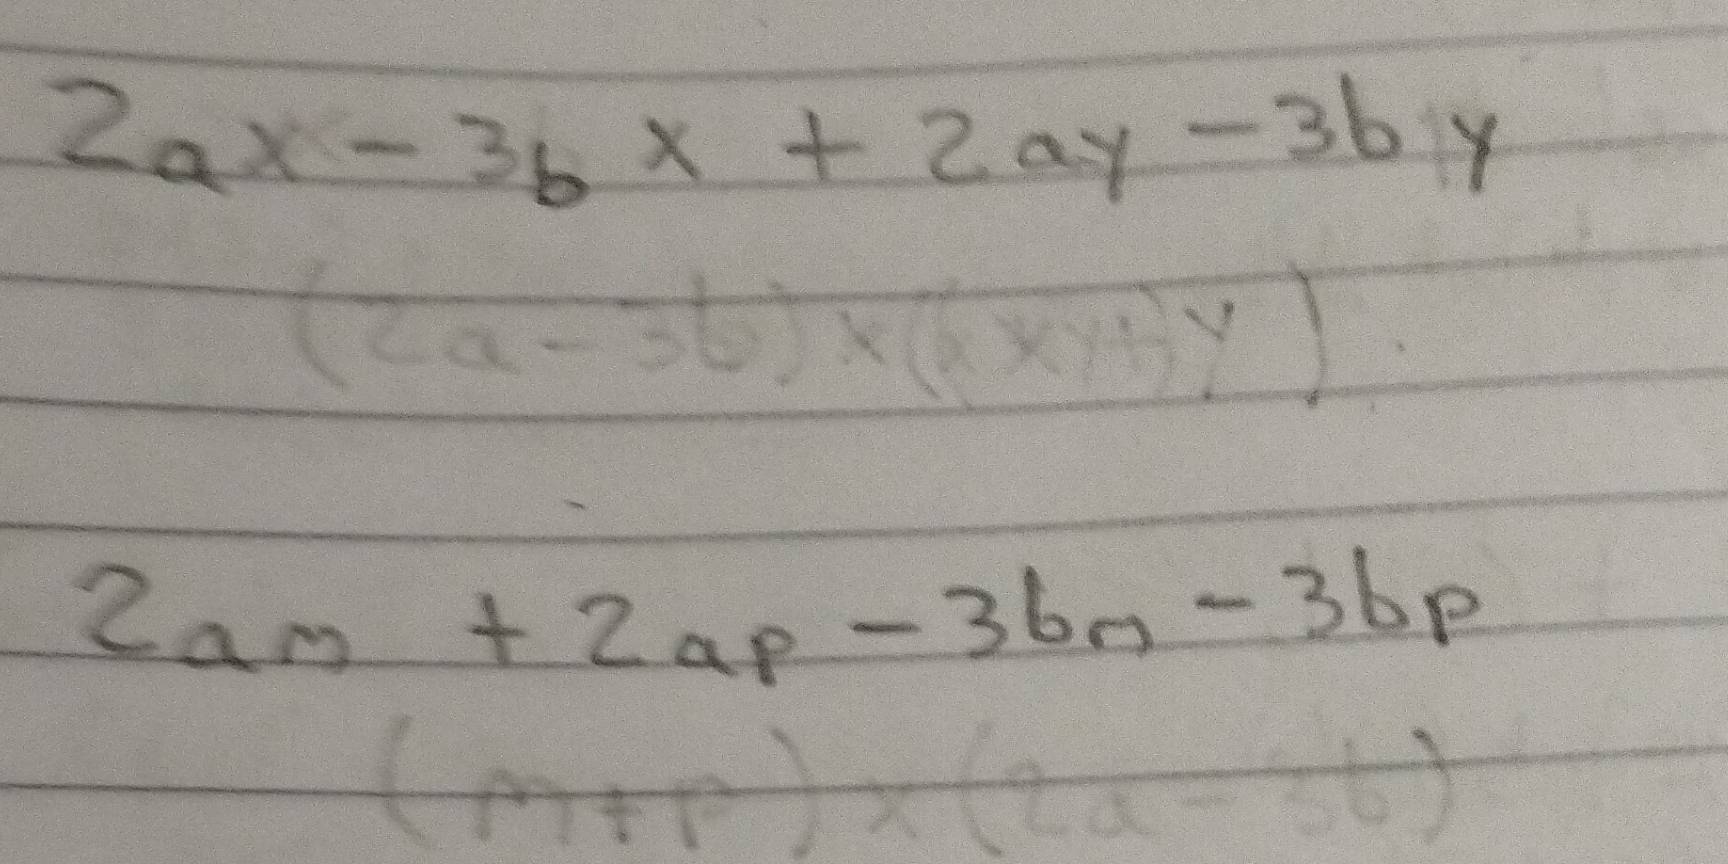 2ax - 3bx + 2ay - 3by
(2a - 3b) x (x + y)
2am + 2ap - 3bm - 3bp
(m + p) x (2a - 3b)